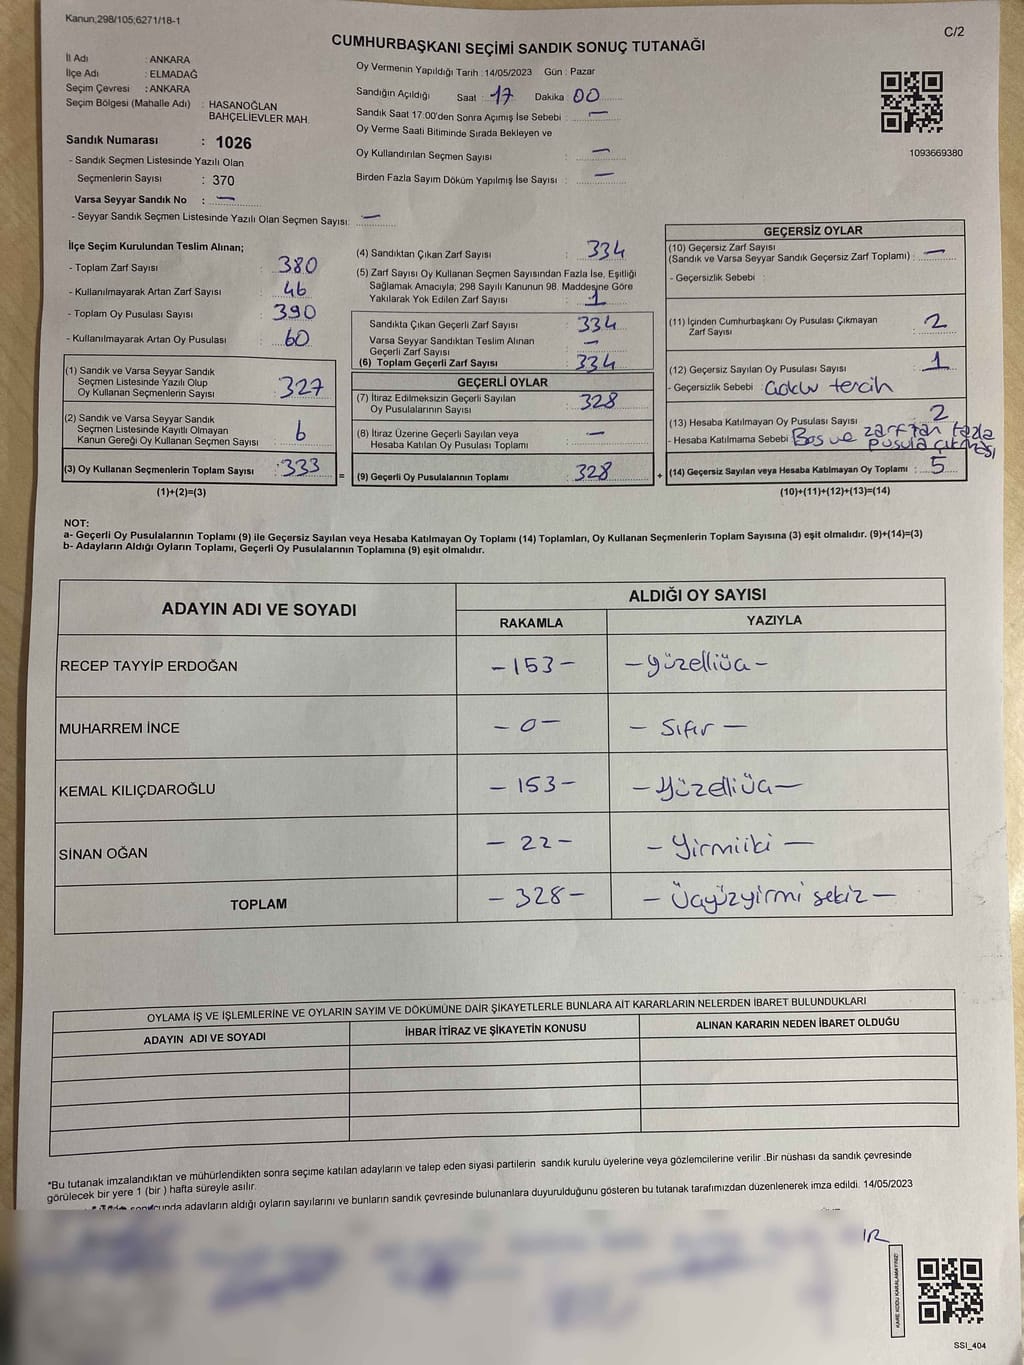 Kanun;298/105;6271/18-1
C/2
CUMHURBAŞKANI SEÇİMİ SANDIK SONUÇ TUTANAĞI
İl Adı : ANKARA
İlçe Adı : ELMADAĞ
Seçim Çevresi : ANKARA
Seçim Bölgesi (Mahalle Adı) : HASANOĞLAN
BAHÇELİEVLER MAH.
Sandık Numarası : 1026
- Sandık Seçmen Listesinde Yazılı Olan
Seçmenlerin Sayısı : 370
Varsa Seyyar Sandık No : —
- Seyyar Sandık Seçmen Listesinde Yazılı Olan Seçmen Sayısı: —
Oy Vermenin Yapıldığı Tarih : 14/05/2023 Gün : Pazar
Sandığın Açıldığı Saat : 17 Dakika 00
Sandık Saat 17:00'den Sonra Açımış İse Sebebi : —
Oy Verme Saati Bitiminde Sırada Bekleyen ve
Oy Kullandırılan Seçmen Sayısı : —
Birden Fazla Sayım Döküm Yapılmış İse Sayısı : —
1093669380
İlçe Seçim Kurulundan Teslim Alınan;
- Toplam Zarf Sayısı : 380
- Kullanılmayarak Artan Zarf Sayısı : 46
- Toplam Oy Pusulası Sayısı : 390
- Kullanılmayarak Artan Oy Pusulası : 60
(1) Sandık ve Varsa Seyyar Sandık
Seçmen Listesinde Yazılı Olup
Oy Kullanan Seçmenlerin Sayısı : 327
(2) Sandık ve Varsa Seyyar Sandık
Seçmen Listesinde Kayıtlı Olmayan
Kanun Gereği Oy Kullanan Seçmen Sayısı : 6
(3) Oy Kullanan Seçmenlerin Toplam Sayısı : 333 =
(1)+(2)=(3)
(4) Sandıktan Çıkan Zarf Sayısı : 334
(5) Zarf Sayısı Oy Kullanan Seçmen Sayısından Fazla İse, Eşitliği
Sağlamak Amacıyla; 298 Sayılı Kanunun 98. Maddesine Göre
Yakılarak Yok Edilen Zarf Sayısı : 1
Sandıkta Çıkan Geçerli Zarf Sayısı : 334
Varsa Seyyar Sandıktan Teslim Alınan
Geçerli Zarf Sayısı : —
(6) Toplam Geçerli Zarf Sayısı : 334
GEÇERLİ OYLAR
(7) İtiraz Edilmeksizin Geçerli Sayılan
Oy Pusulalarının Sayısı : 328
(8) İtiraz Üzerine Geçerli Sayılan veya
Hesaba Katılan Oy Pusulası Toplamı : —
(9) Geçerli Oy Pusulalarının Toplamı : 328 +
GEÇERSİZ OYLAR
(10) Geçersiz Zarf Sayısı
(Sandık ve Varsa Seyyar Sandık Geçersiz Zarf Toplamı) : —
- Geçersizlik Sebebi :
(11) İçinden Cumhurbaşkanı Oy Pusulası Çıkmayan
Zarf Sayısı : 2
(12) Geçersiz Sayılan Oy Pusulası Sayısı : 1
- Geçersizlik Sebebi : çoklu tercih
(13) Hesaba Katılmayan Oy Pusulası Sayısı : 2
- Hesaba Katılmama Sebebi : Boş ve zarftan fazla
pusula çıkması
(14) Geçersiz Sayılan veya Hesaba Katılmayan Oy Toplamı : 5
(10)+(11)+(12)+(13)=(14)
NOT:
a- Geçerli Oy Pusulalarının Toplamı (9) ile Geçersiz Sayılan veya Hesaba Katılmayan Oy Toplamı (14) Toplamları, Oy Kullanan Seçmenlerin Toplam Sayısına (3) eşit olmalıdır. (9)+(14)=(3)
b- Adayların Aldığı Oyların Toplamı, Geçerli Oy Pusulalarının Toplamına (9) eşit olmalıdır.
ADAYIN ADI VE SOYADI ALDIĞI OY SAYISI
RAKAMLA YAZIYLA
RECEP TAYYİP ERDOĞAN - 153 - - yüzelliüç -
MUHARREM İNCE - 0 - - Sıfır -
KEMAL KILIÇDAROĞLU - 153 - - Yüzelliüç -
SİNAN OĞAN - 22 - - Yirmiiki -
TOPLAM - 328 - - Üçyüzyirmi sekiz -
OYLAMA İŞ VE İŞLEMLERİNE VE OYLARIN SAYIM VE DÖKÜMÜNE DAİR ŞİKAYETLERLE BUNLARA AİT KARARLARIN NELERDEN İBARET BULUNDUKLARI
ADAYIN ADI VE SOYADI İHBAR İTİRAZ VE ŞİKAYETİN KONUSU ALINAN KARARIN NEDEN İBARET OLDUĞU
*Bu tutanak imzalandıktan ve mühürlendikten sonra seçime katılan adayların ve talep eden siyasi partilerin sandık kurulu üyelerine veya gözlemcilerine verilir .Bir nüshası da sandık çevresinde
görülecek bir yere 1 (bir ) hafta süreyle asılır.
adayların aldığı oyların sayılarını ve bunların sandık çevresinde bulunanlara duyurulduğunu gösteren bu tutanak tarafımızdan düzenlenerek imza edildi. 14/05/2023
KARE KODU KARALAMAYINIZ!
SSI_404